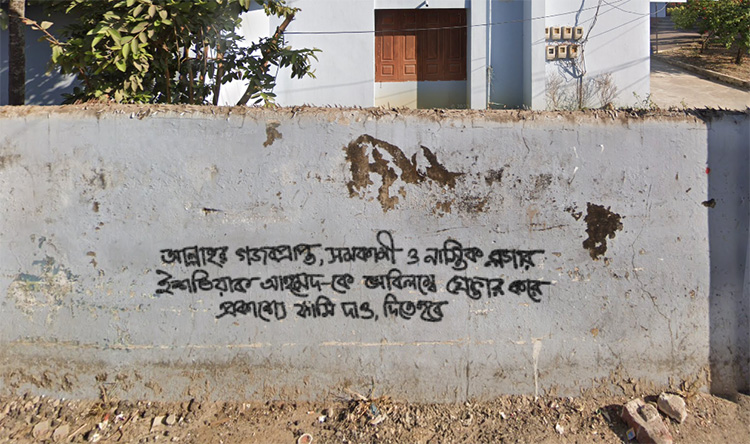 আল্লাহর গজবপ্রাপ্ত, সমকামী ও নাস্তিক ব্লগার
ইশতিয়াক আহমেদ-কে অবিলম্বে গ্রেফতার করে
প্রকাশ্যে ফাসি দাও, দিতেহবে